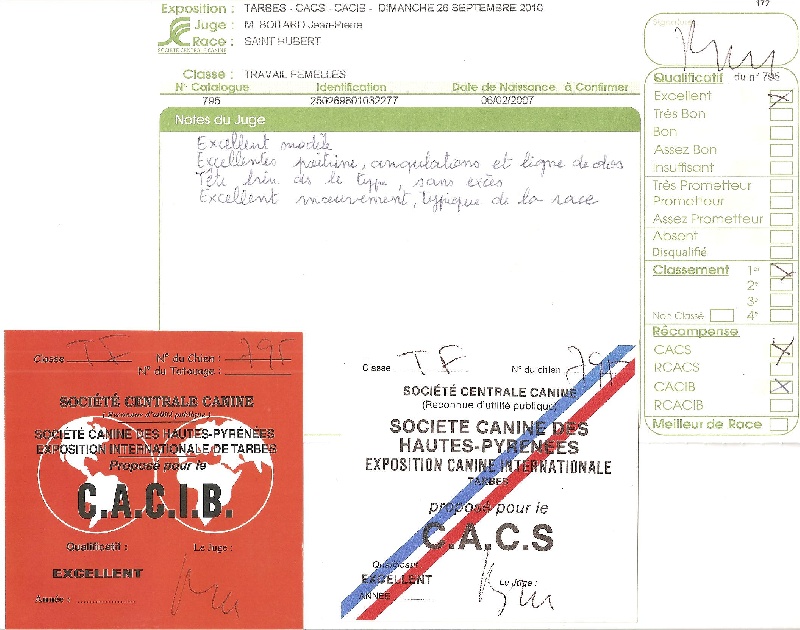 177
Exposition : TARBES - CACS - CACIB - DIMANCHE 26 SEPTEMBRE 2010
Juge : M. BOITARD Jean-Pierre
Race : SAINT HUBERT
SOCIÉTÉ CENTRALE CANINE
Classe : TRAVAIL FEMELLES
N° Catalogue Identification Date de Naissance à Confirmer
795 250269801032277 06/02/2007
Notes du Juge
Excellent modèle
Excellentes poitrine, angulations et ligne de dos
Tête bien ds le type, sans excès
Excellent mouvement, typique de la race
Signature
Qualificatif du n° 795
Excellent
Très Bon
Bon
Assez Bon
Insuffisant
Très Prometteur
Prometteur
Assez Prometteur
Absent
Disqualifié
Classement 1er
2e
3e
Non Classé 4e
Récompense
CACS
RCACS
CACIB
RCACIB
Meilleur de Race
Classe TF N° du Chien : 795
N° du Tatouage :
SOCIÉTÉ CENTRALE CANINE
(Reconnue d'utilité publique)
SOCIÉTÉ CANINE DES HAUTES-PYRÉNÉES
EXPOSITION INTERNATIONALE DE TARBES
Proposé pour le
C.A.C.I.B.
Qualificatif : Le Juge :
EXCELLENT
Année :
Classe TF N° du chien 795
SOCIÉTÉ CENTRALE CANINE
(Reconnue d'utilité publique)
SOCIETE CANINE DES
HAUTES-PYRENEES
EXPOSITION CANINE INTERNATIONALE
TARBES
proposé pour le
C.A.C.S
Qualificatif Le Juge :
EXCELLENT
ANNÉE